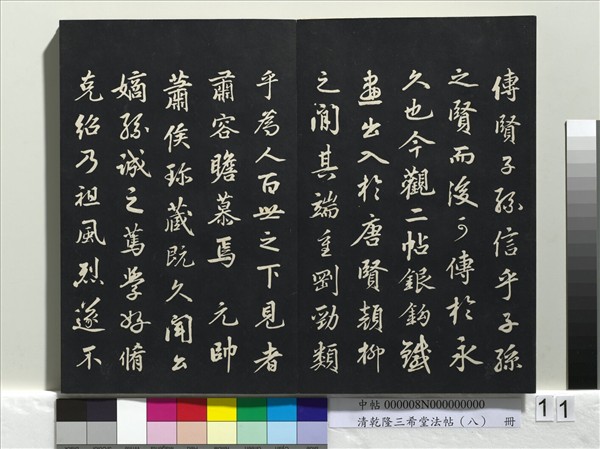 傳賢子孫信乎子孫
之賢而後可傳於永
久也今觀二帖銀鈎鐵
畫出入於唐賢顏柳
之間其端重剛勁類
乎為人百世之下見者
肅容瞻慕焉 元帥
蕭侯珍藏既久聞公
嫡孫誠之篤學好脩
克紹乃祖風烈遂不
中帖 000008N000000000
清乾隆三希堂法帖(八) 冊
11